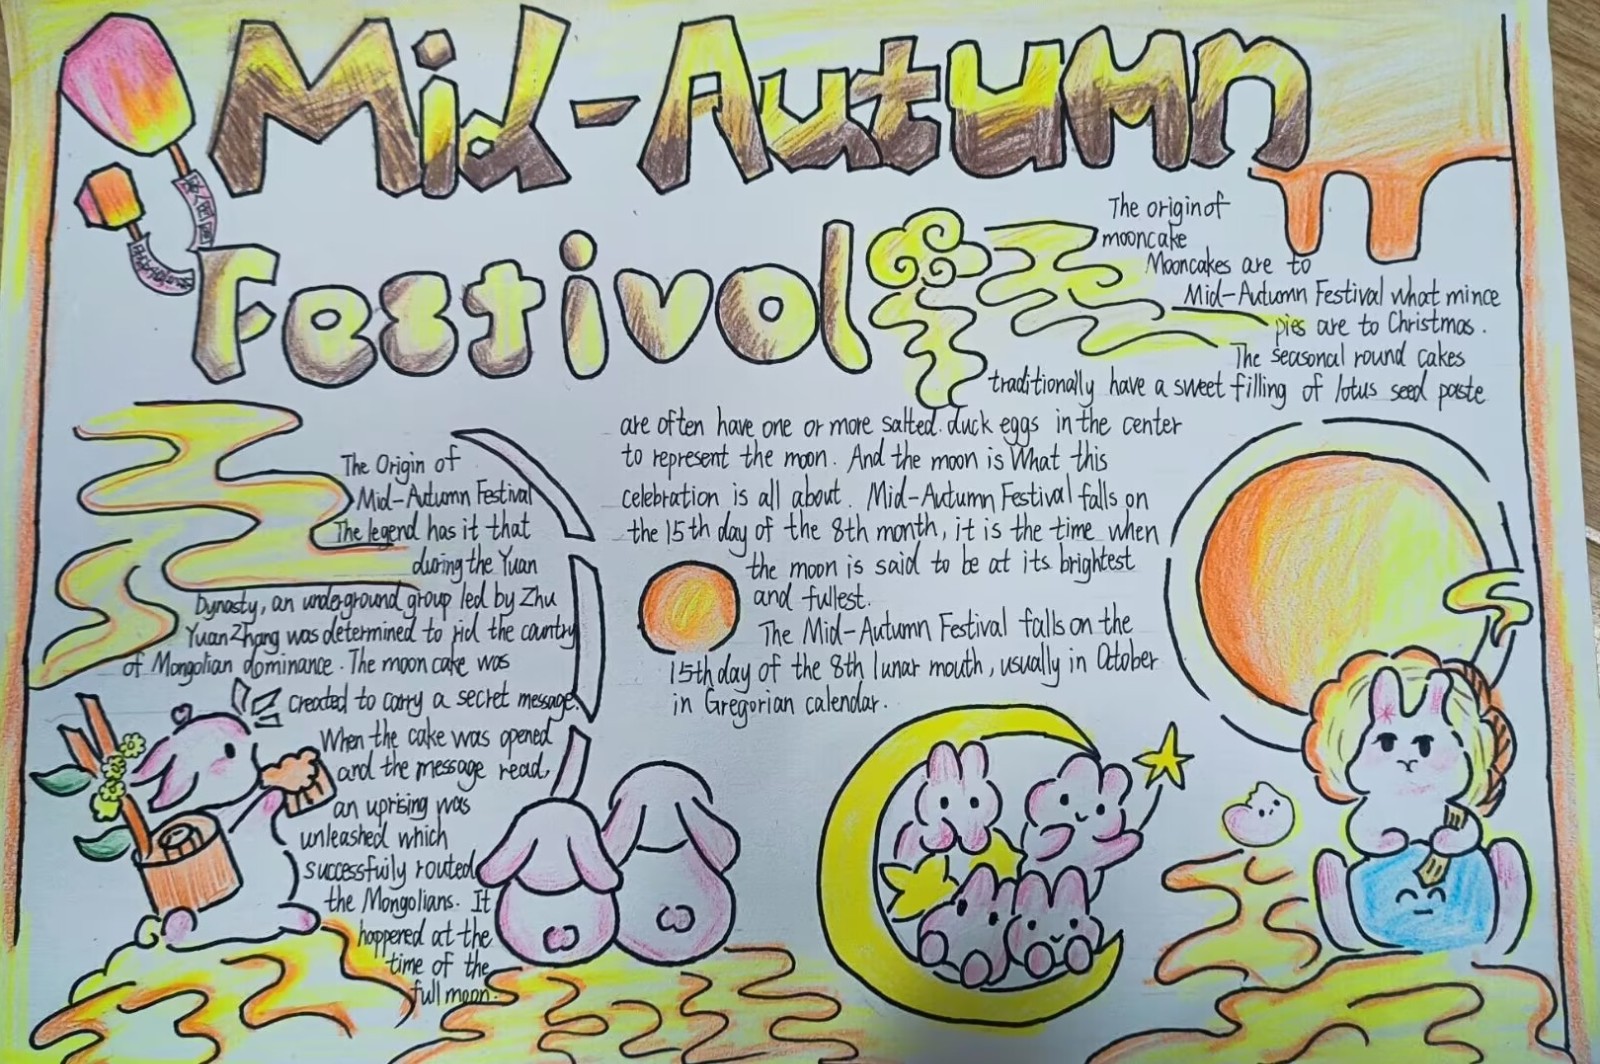 Mid-Autumn
Festival
The origin of
mooncake
Mooncakes are to
Mid-Autumn Festival what mince
pies are to Christmas.
The seasonal round cakes
traditionally have a sweet filling of lotus seed paste
are often have one or more salted. duck eggs in the center
to represent the moon. And the moon is What this
celebration is all about. Mid-Autumn Festival falls on
the 15th day of the 8th month, it is the time when
the moon is said to be at its brightest
and fullest.
The Mid-Autumn Festival falls on the
15th day of the 8th lunar mouth, usually in October
in Gregorian calendar.
The Origin of
Mid-Autumn Festival
The legend has it that
during the Yuan
Dynasty, an underground group led by Zhu
Yuan Zhang was determined to rid the country
of Mongolian dominance. The moon cake was
created to carry a secret message.
When the cake was opened
and the message read,
an uprising was
unleashed which
successfuily routed
the Mongolians. It
happened at the
time of the
full moon.